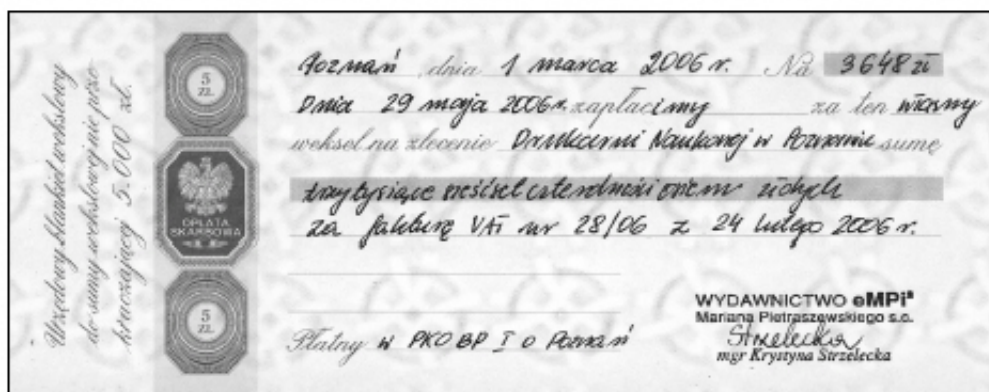 Urzędowy blankiet wekslowy
do sumy wekslowej nie prze-
kraczającej 5.000 zł.
5
ZŁ
OPŁATA
SKARBOWA
5
ZŁ
Poznań, dnia 1 marca 2006 r. Na 3648 zł
Dnia 29 maja 2006 r. zapłacimy za ten własny
weksel na zlecenie Drukarni Naukowej w Poznaniu sumę
trzy tysiące sześćset czterdzieści osiem złotych
za fakturę VAT nr 28/06 z 24 lutego 2006 r.
Płatny w PKO BP I O Poznań
WYDAWNICTWO eMPi²
Mariana Pietraszewskiego s.c.
Strzelecka
mgr Krystyna Strzelecka